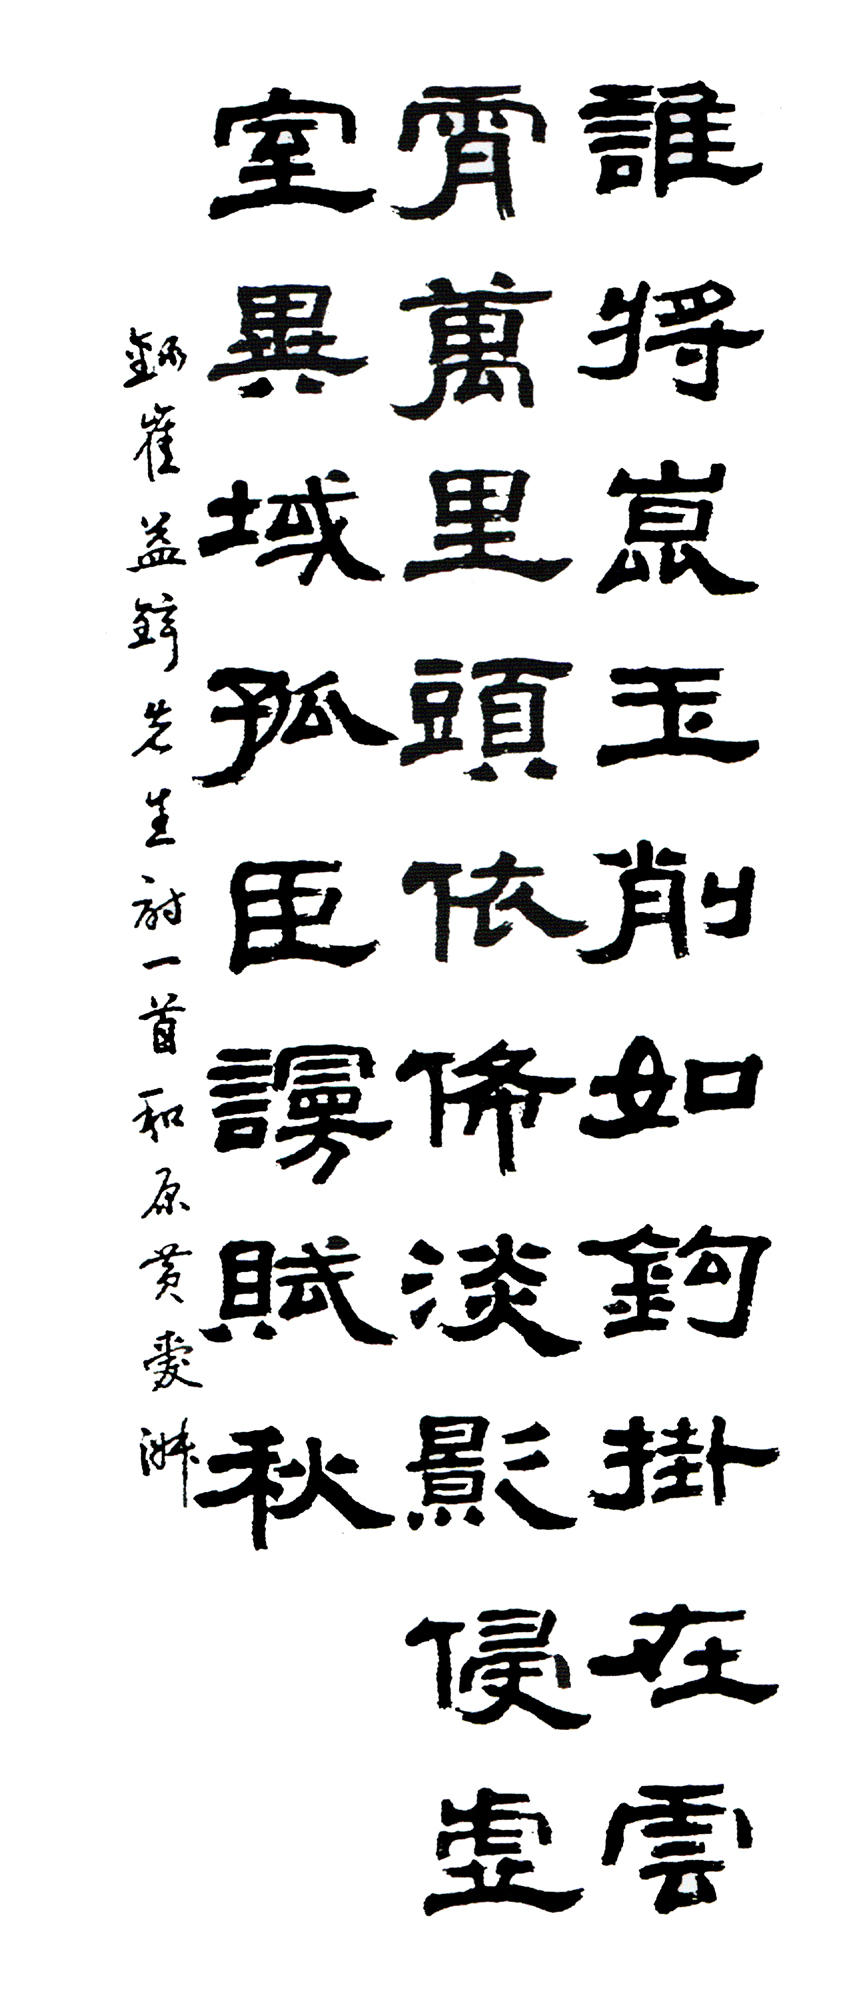 誰將崑玉削如鉤掛在雲
霄萬里頭依俙淡影侵虛
室異域孤臣謾賦秋
錄崔益鉉先生詩一首和原黃